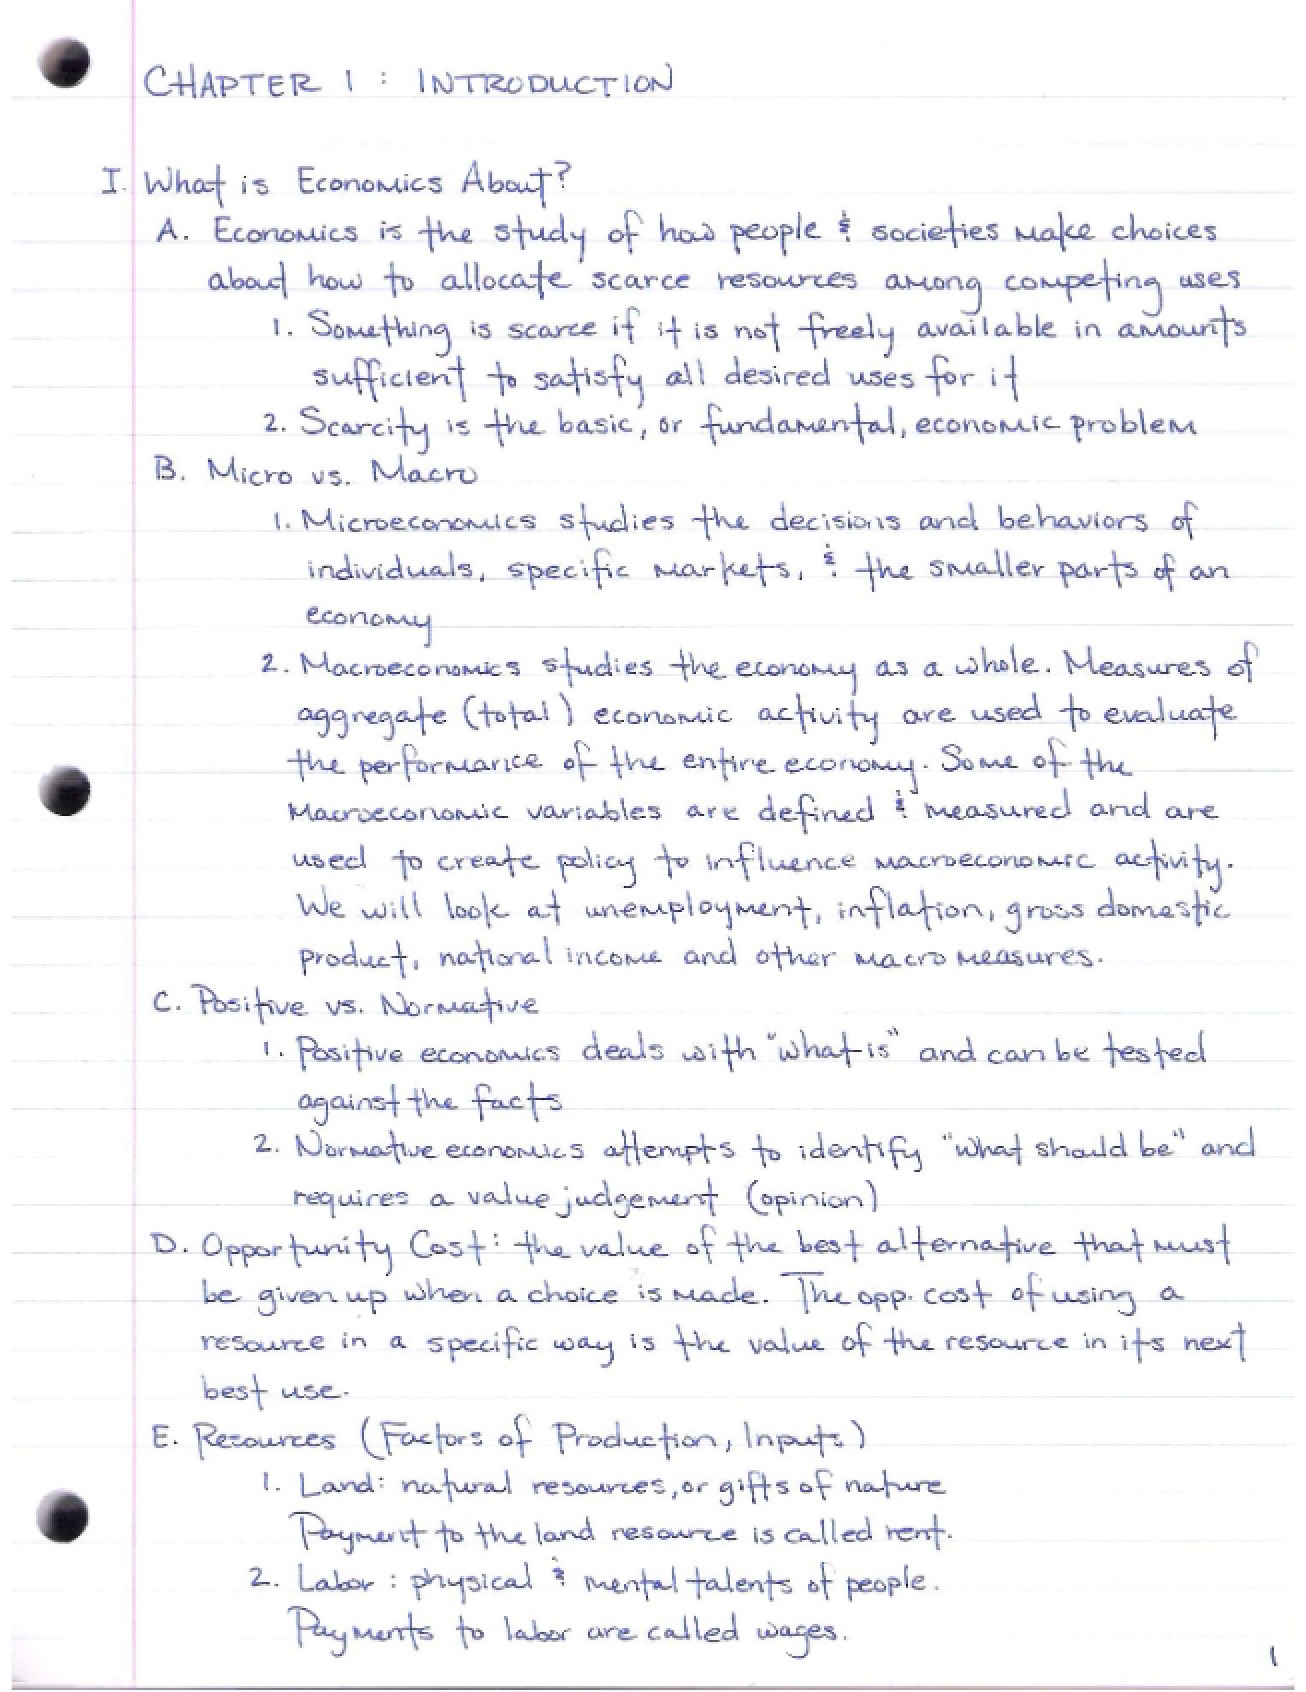 CHAPTER 1 : INTRODUCTION
I. What is Economics About?
A. Economics is the study of how people & societies make choices
about how to allocate scarce resources among competing uses
1. Something is scarce if it is not freely available in amounts
sufficient to satisfy all desired uses for it
2. Scarcity is the basic, or fundamental, economic problem
B. Micro vs. Macro
1. Microeconomics studies the decisions and behaviors of
individuals, specific markets, & the smaller parts of an
economy
2. Macroeconomics studies the economy as a whole. Measures of
aggregate (total) economic activity are used to evaluate
the performance of the entire economy. Some of the
macroeconomic variables are defined & measured and are
used to create policy to influence macroeconomic activity.
We will look at unemployment, inflation, gross domestic
product, national income and other macro measures.
C. Positive vs. Normative
1. Positive economics deals with "what is" and can be tested
against the facts
2. Normative economics attempts to identify "what should be" and
requires a value judgement (opinion)
D. Opportunity Cost: the value of the best alternative that must
be given up when a choice is made. The opp. cost of using a
resource in a specific way is the value of the resource in its next
best use.
E. Resources (Factors of Production, Inputs)
1. Land: natural resources, or gifts of nature
Payment to the land resource is called rent.
2. Labor : physical & mental talents of people.
Payments to labor are called wages.
1